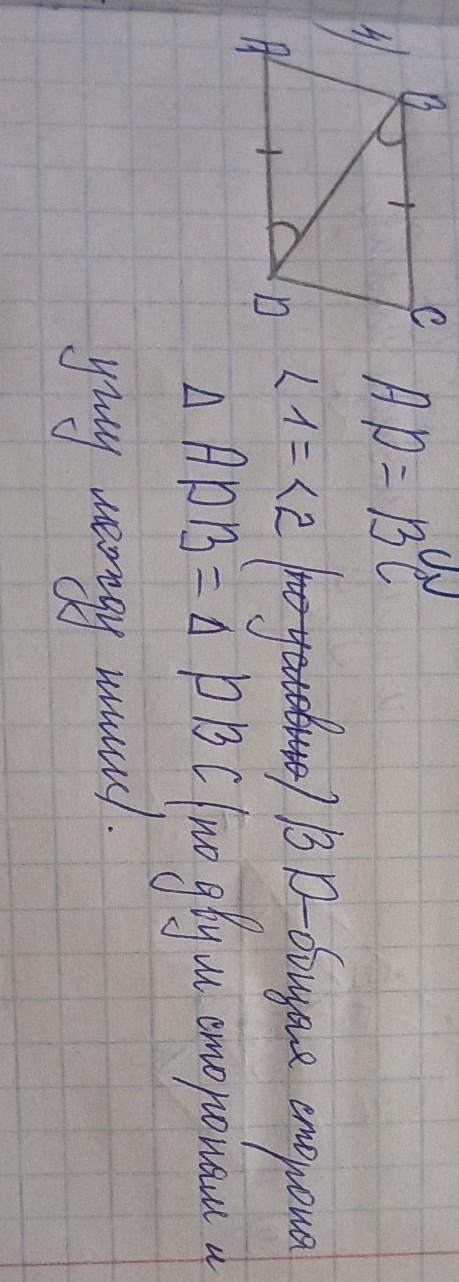 4)
A B C D
AD = BC
<1 = <2 (по условию) BD - общая сторона
Δ ADB = Δ DBC (по двум сторонам и
углу между ними).